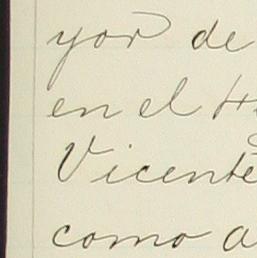 yor de
en el H
Vicente
como a